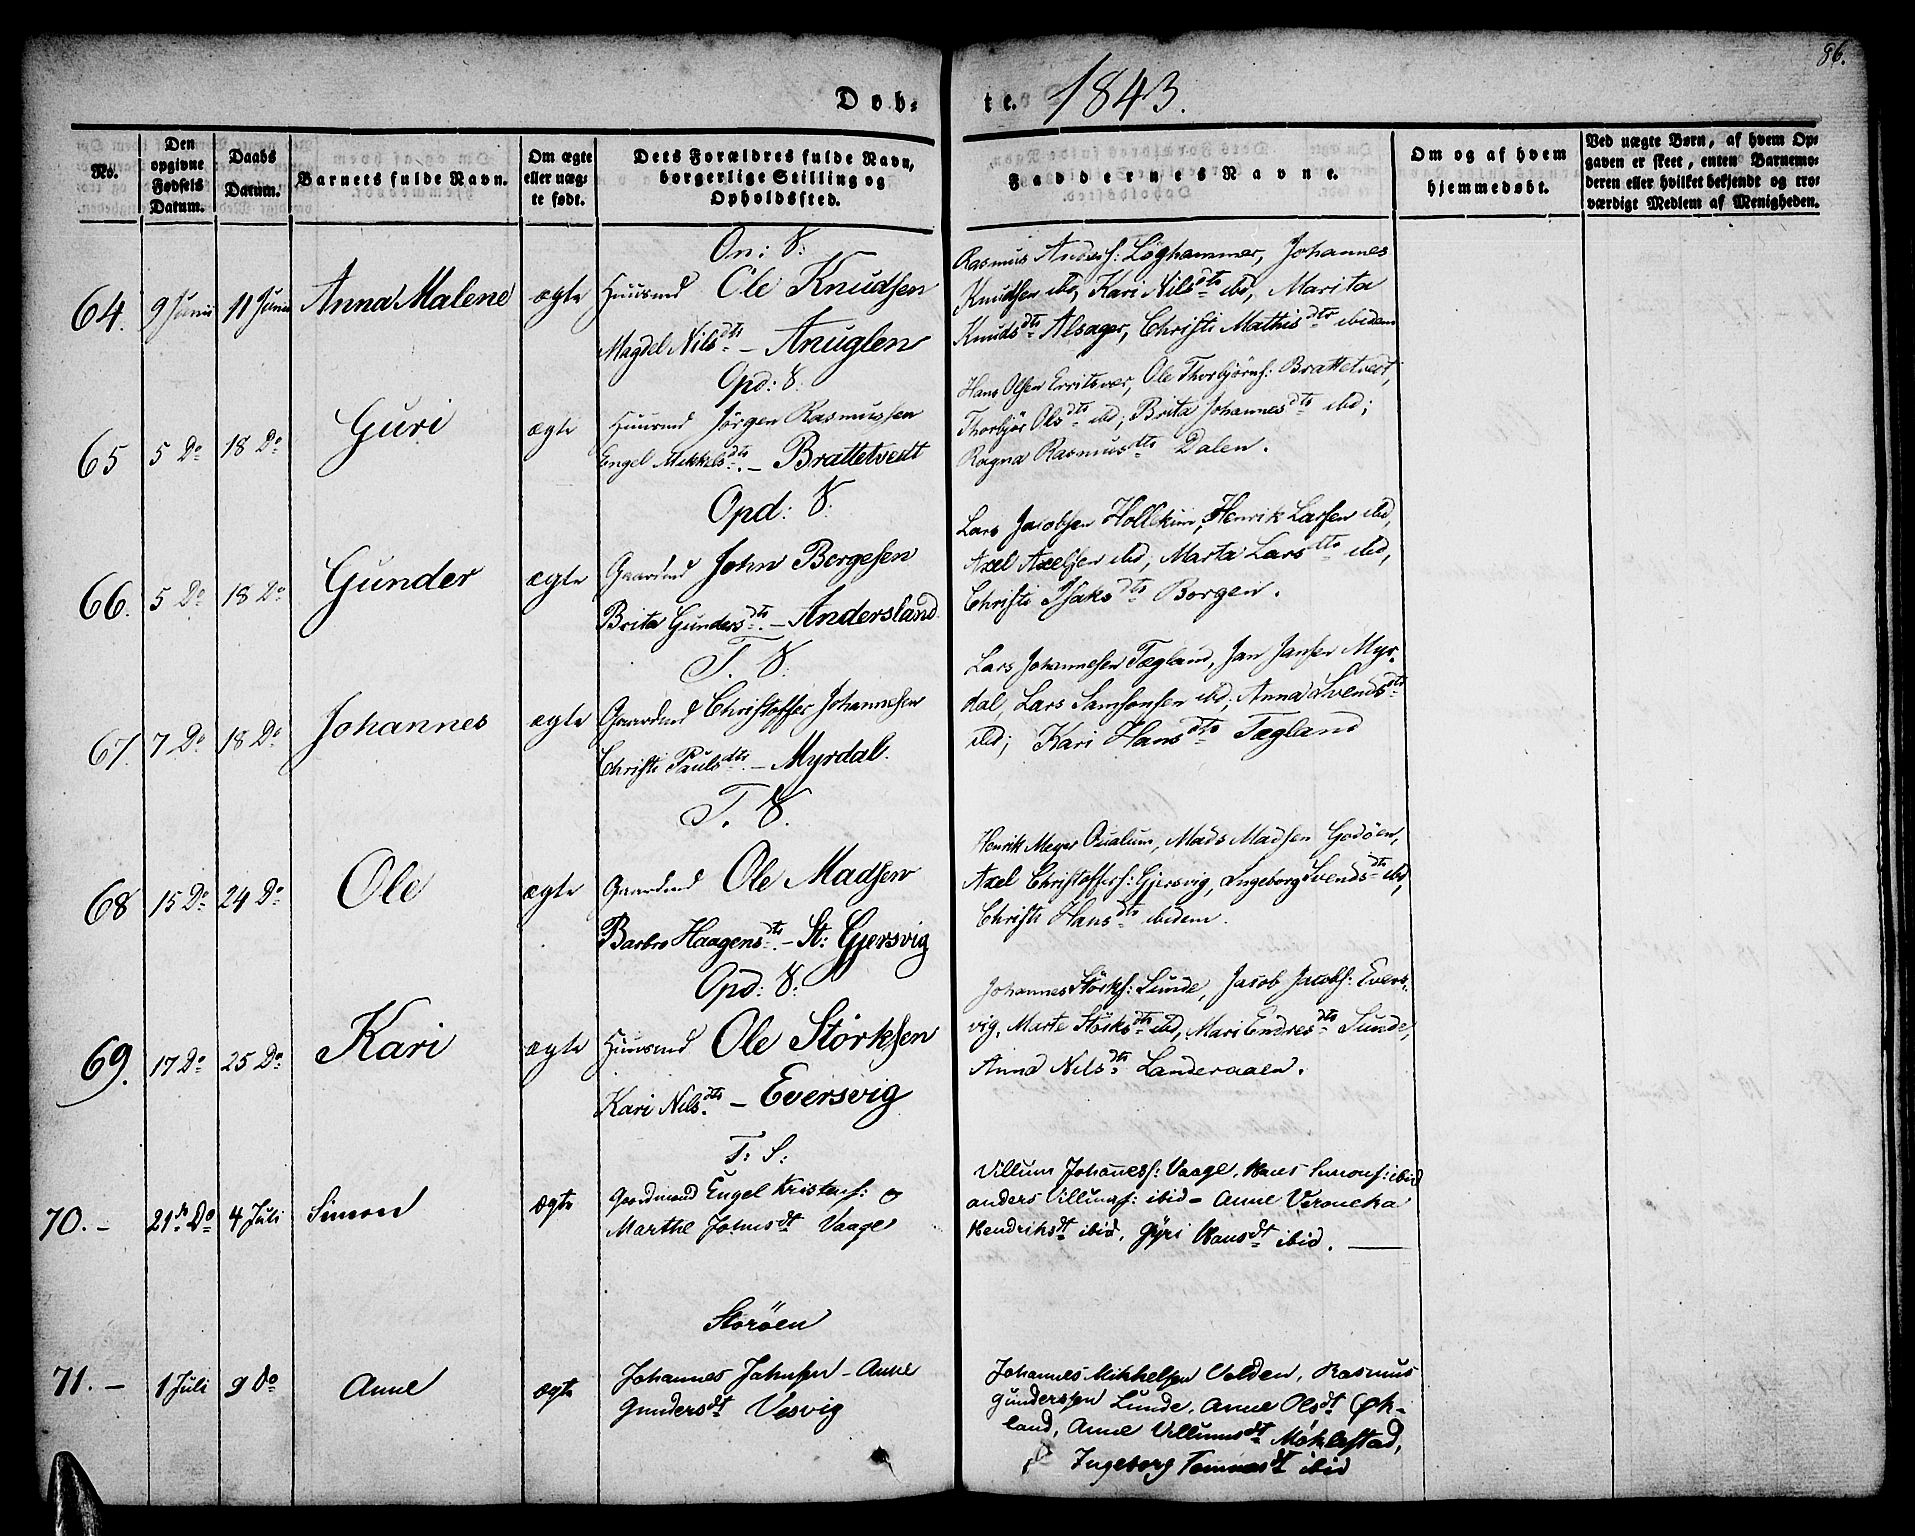 86.
Døb- te. 1843.
No.
Den opgivne Fødsels Datum.
Daabs Datum.
Barnets fulde Navn.
Om ægte eller uæg- te født.
Dets Forældres fulde Navn, borgerlige Stilling og Opholdssted.
Faddernes Navne.
Om og af hvem hjemmedøbt.
Ved uægte Børn, af hvem Op-
gaven er skeet, enten Barnemo-
deren eller hvilket bekjendt og tro-
værdigt Medlem af Menigheden.
On: S:
64. 9 Junii 11 Junii Anna Malene ægte Huusmd Ole Knudsen
Magdel Nilsdtr - Anuglen
Rasmus Anders: Løghammer, Johannes
Knudsen ibd, Kari Nilsdtr ibd, Marita
Knudsdtr Alsager, Christi Mathisdtr ibidem
Opd: S:
65 5 Do 18 Do Guri ægte Huusmd Jørgen Rasmussen
Engel Mikkelsdtr - Brattetvedt
Hans Olsen Erritsvær, Ole Thorbjørns: Brattetvedt,
Thorbjør Olsdtr ibd; Brita Johannesdtr ibd;
Ragna Rasmusdtr Dalen.
Opd: S:
66. 5 Do 18 Do Gunder ægte Gaardmd John Borgesen
Brita Gundersdtr - Andersland
Lars Jacobsen Hollekim, Henrik Larsen ibd,
Axel Axelsen ibd, Marta Larsdtr ibd,
Christi Isaksdtr Borgen.
T. S:
67. 7 Do 18 Do Johannes ægte Gaardmd Christoffer Johannesen
Christi Paulsdtr - Myrdal.
Lars Johannesen Tægland, Jan Jansen Myr-
dal, Lars Samsonsen ibd, Anna Svendsdtr
ibd; Kari Hansdtr Tægland
T. S.
68 15 Do 24 Do Ole ægte Gaardmd Ole Madsen
Barbro Haagensdtr - St: Gjersvig
Henrik Meyer Qualum, Mads Madsen Godøen,
Axel Christoffers: Gjersvig, Ingeborg Svendsdtr ibd,
Christi Hansdtr ibidem.
Opd: S:
69. 17 Do 25 Do Kari ægte Huusmd Ole Størksen
Kari Nilsdtr - Eversvig
Johannes Størks: Sunde, Jacob Jacobs: Evers-
vig, Marte Størksdtr ibd, Mari Endresdtr Sunde,
Anna Nilsdtr Landeraaen.
T: S:
70. - 21de Do 4 Juli Simon ægte Gaardmand Engel Kristens: o
Marthe Johnsdt Vaage
Villum Johaness: Vaage, Hans Simons: ibid
anders Villums: ibid - Anne Veroneka
Hendriksdt ibid, Gyri Hansdt ibid.
Storøen
71. - 1 Juli 9 Do Anne ægte Johannes Johnsen - Anne
Gundersdt Vesvig
Johannes Mikkelsen Velden, Rasmus
Gunderssen Lunde, Anne Olsdt Øk-
land, Anne Villumsdt Møklestad,
Ingeborg Tomasdt ibid